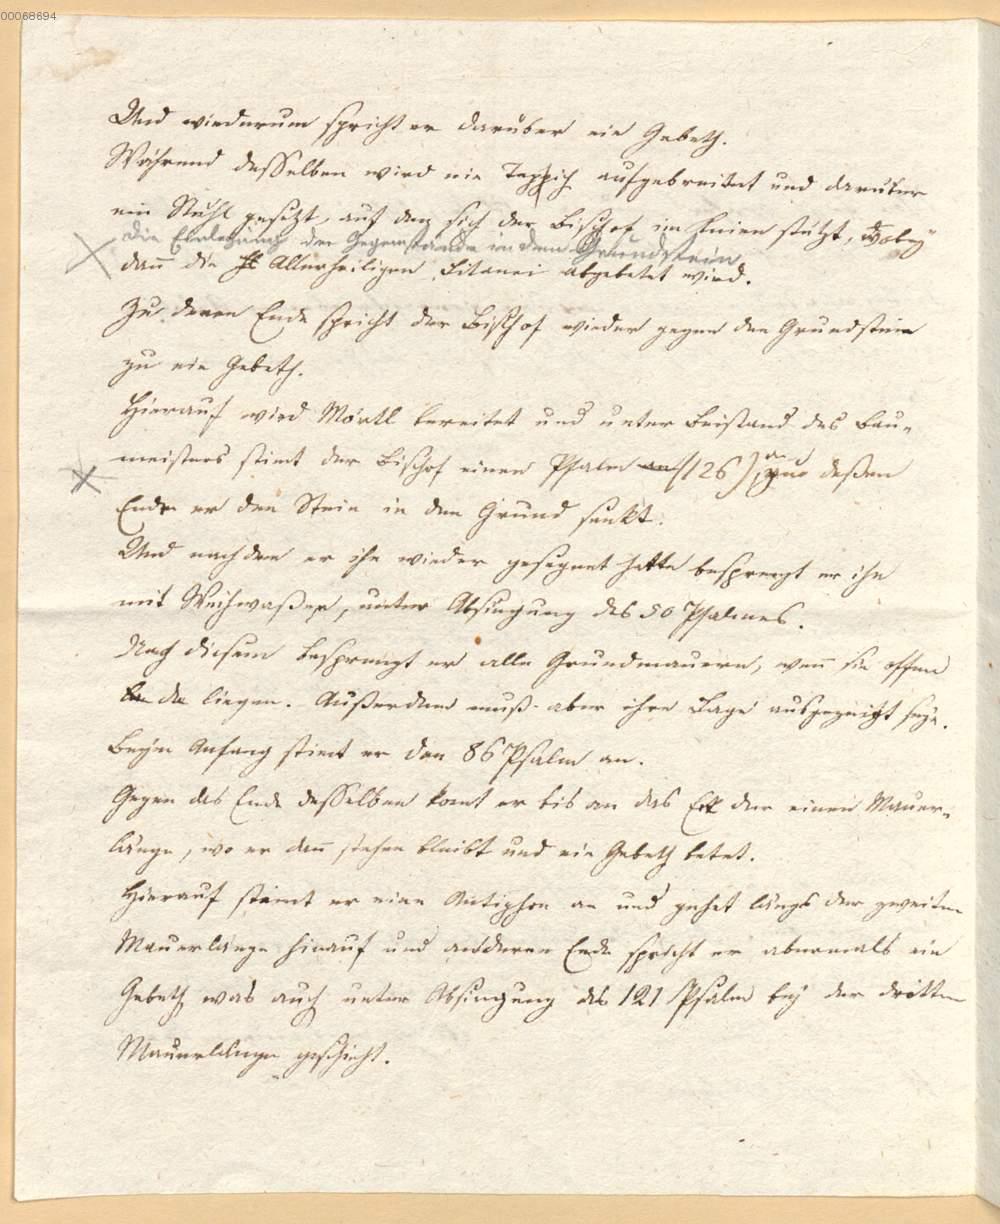 00068694
Und wiederum spricht er darüber ein Gebeth.
Während desselben wird ein Teppich aufgebreitet und darüber
ein Stuhl gesetzt, auf den sich der Bischof im knien stützt, wobey
die Einlegung der Gegenstände in den Grundstein
dann die Allerheiligen Litanei abgebetet wird.
Zu deren Ende spricht der Bischof wieder gegen den Grundstein
zu ein Gebeth.
Hierauf wird Mörtl bereitet und unter Beistand des Bau-
meisters stimt der Bischof einen Psalm (126) an, deßen
Ende er den Stein in den Grund senkt.
Und nachdem er ihn wieder gesegnet hatte besprengt er ihn
mit Weihwaßer, unter Absingung des 50 Psalmes.
Nach diesem besprengt er alle Grundmauern, wenn sie offen
da liegen. Außerdem muß aber ihre Lage ausgezeigt seyn.
Beym Anfang stimt er den 86 Psalm an.
Gegen das Ende desselben komt er bis an das Eck der einen Mauer-
länge, wo er dann stehen bleibt und ein Gebeth betet.
Hierauf stimt er eine Antiphon an und gehet längs der zweiten
Mauerlänge hinauf und anderen Ende spricht er abermals ein
Gebeth was auch unter Absingung des 121 Psalm bey der dritten
Mauerlänge geschieht.